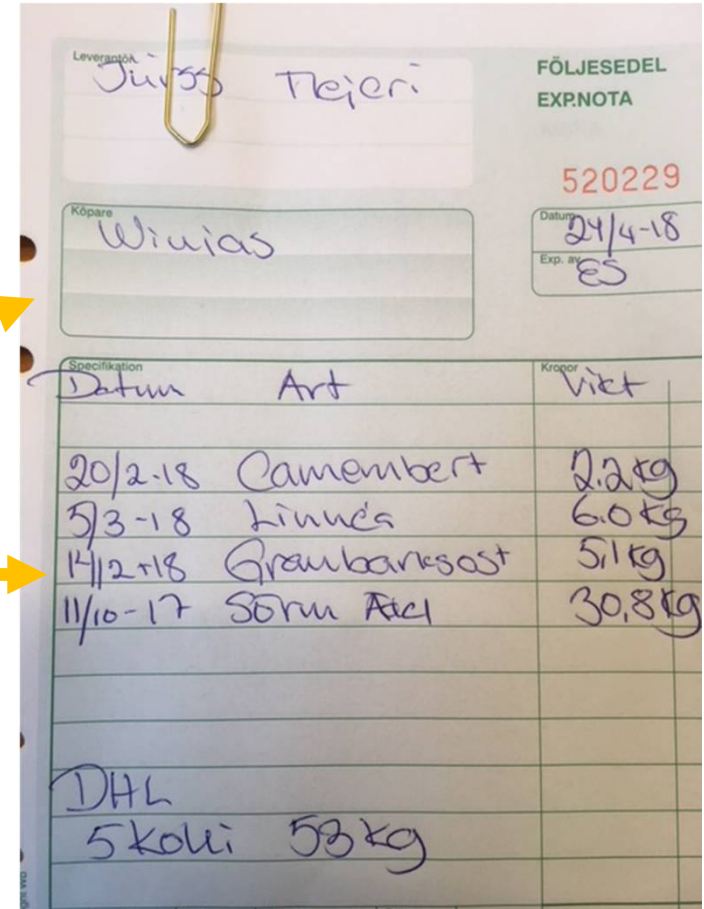 Leverantör
Jürss Mejeri
FÖLJESEDEL
EXP.NOTA
520229
Köpare
Winias
Datum
24/4-18
Exp. av
ES
Specifikation
Kronor
Datum Art Vikt
20/2-18 Camembert 2.2kg
5/3-18 Linnéa 6.0kg
14/12-18 Granbarksost 5,1kg
11/10-17 Sörm Ädel 30,8kg
DHL
5 kolli 53kg